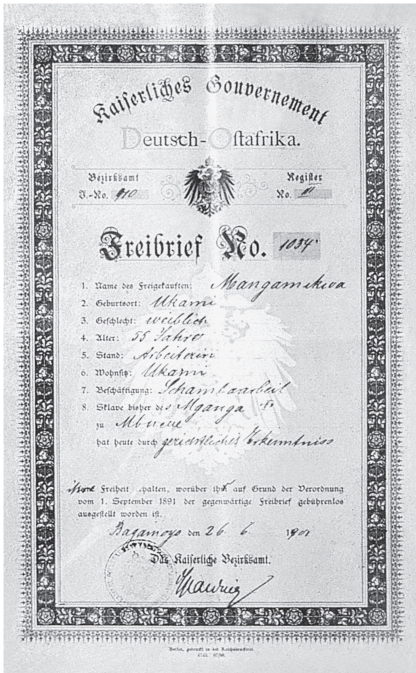 Kaiserliches Gouvernement
Deutsch-Ostafrika.
Bezirksamt Register
J.-No. 910 No. II
Freibrief No. 1034
1. Name des Freigekauften: Mangamikwa
2. Geburtsort: Ukami
3. Geschlecht: weiblich
4. Alter: 55 Jahre
5. Stand: Arbeiterin
6. Wohnsitz: Ukami
7. Beschäftigung: Schambaarbeit
8. Sklave bisher des Mganga
zu
hat heute durch gerichtliches Erkenntniss
Freiheit halten, worüber auf Grund der Verordnung
vom 1. September 1891 der gegenwärtige Freibrief gebührenlos
ausgestellt worden ist.
Bagamoyo den 26. 6. 1901
Das Kaiserliche Bezirksamt.
Berlin, gedruckt in der Reichsdruckerei.